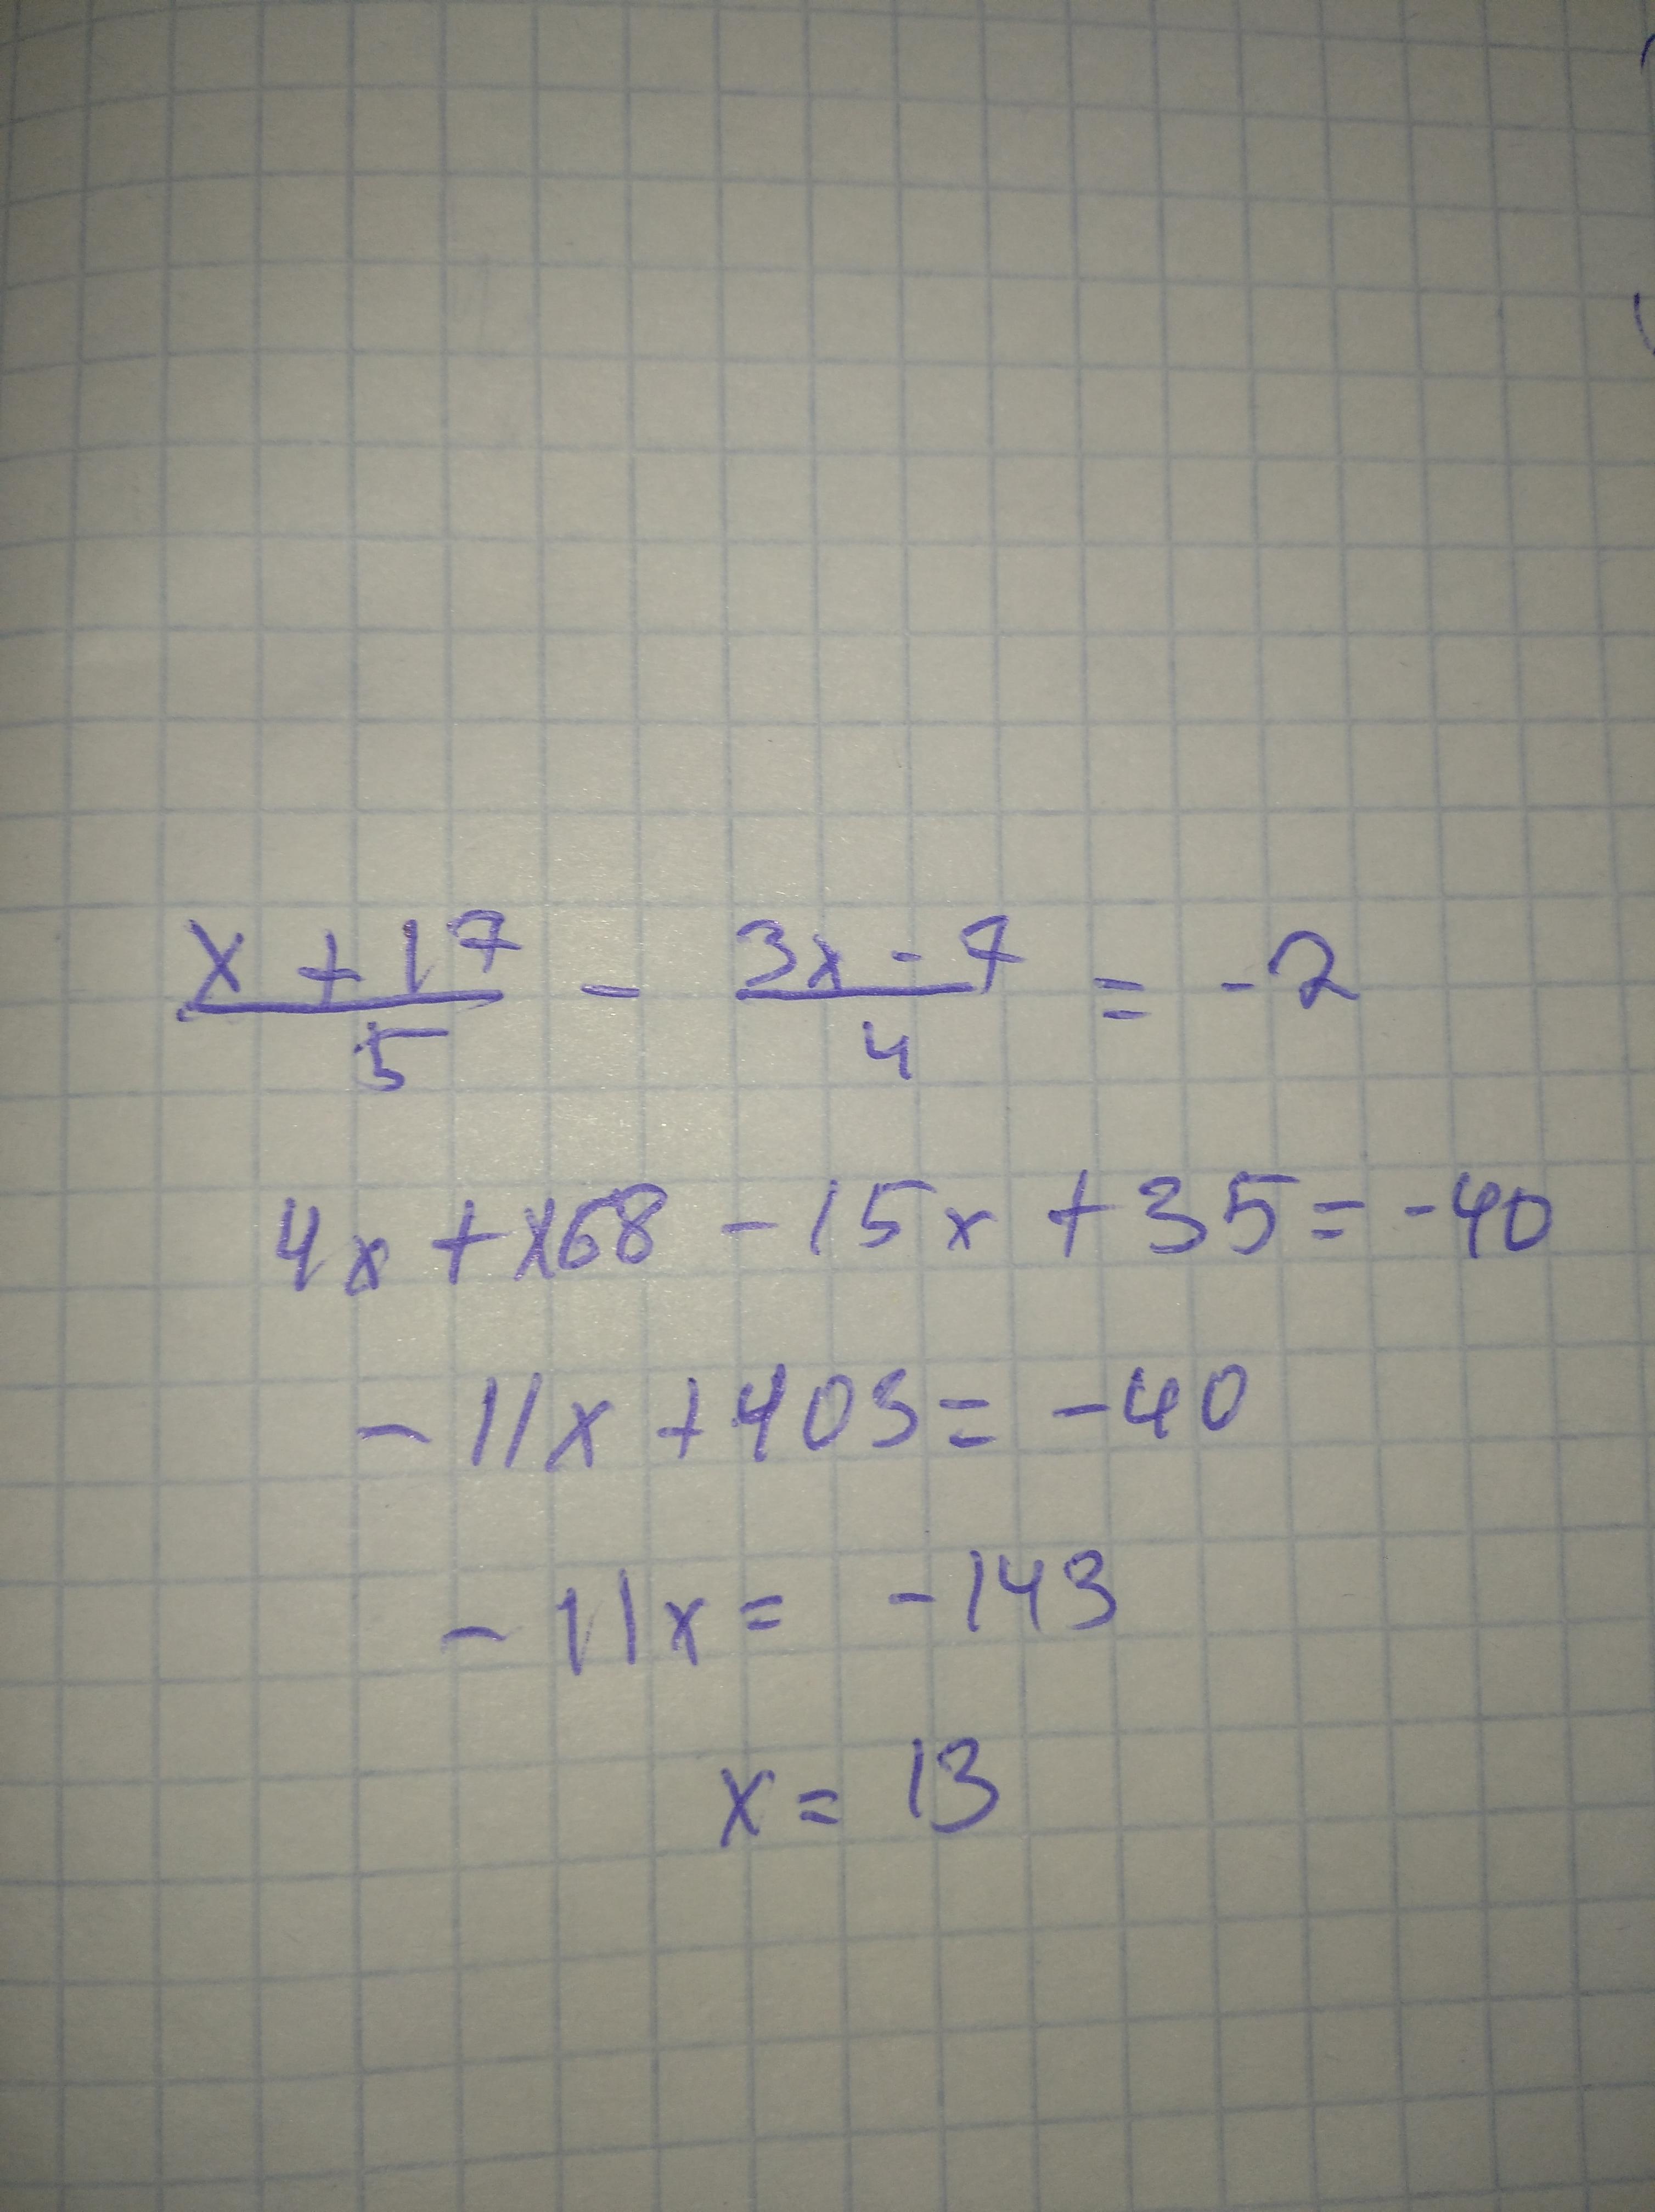 x + 17 / 5 - 3x - 7 / 4 = -2
4x + 68 - 15x + 35 = -40
- 11x + 103 = -40
- 11x = -143
x = 13